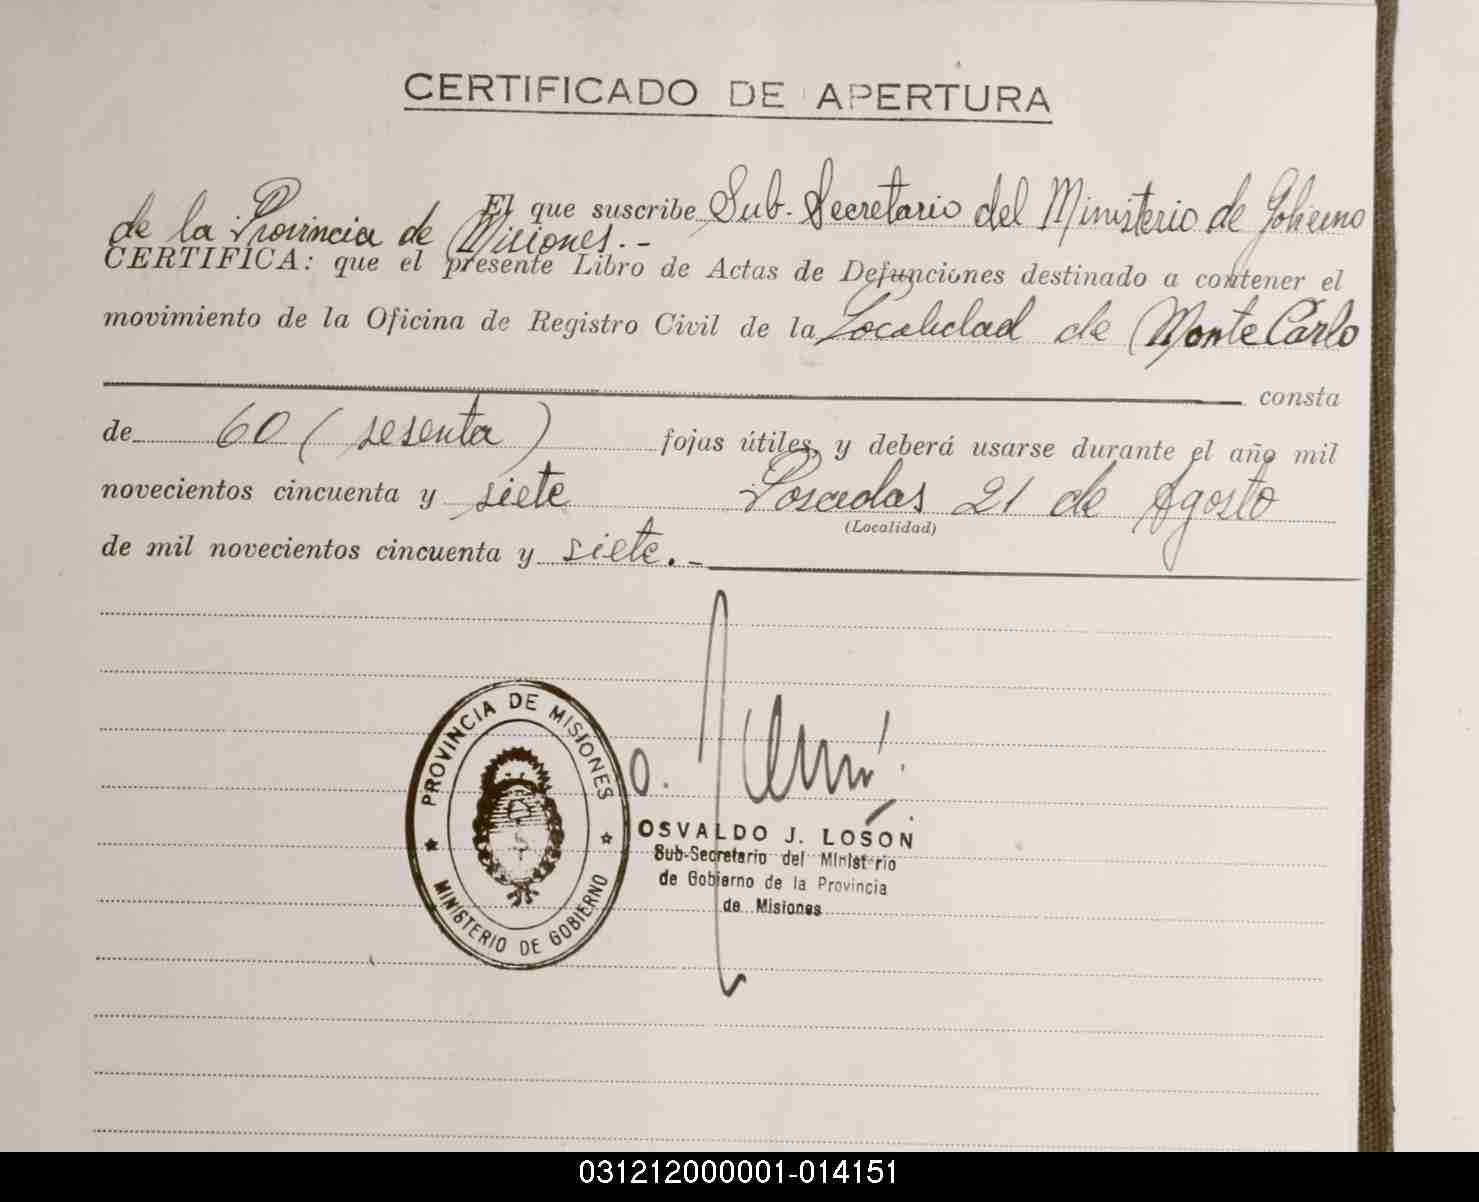 CERTIFICADO DE APERTURA
El que suscribe Sub-Secretario del Ministerio de Gobierno
de la Provincia de Misiones.-
CERTIFICA: que el presente Libro de Actas de Defunciones destinado a contener el
movimiento de la Oficina de Registro Civil de la Localidad de Monte Carlo
consta
de 60 (sesenta) fojas útiles, y deberá usarse durante el año mil
novecientos cincuenta y siete Posadas 21 de Agosto
(Localidad)
de mil novecientos cincuenta y siete.-
PROVINCIA DE MISIONES
MINISTERIO DE GOBIERNO
OSVALDO J. LOSON
Sub-Secretario del Minist rio
de Gobierno de la Provincia
de Misiones
031212000001-014151